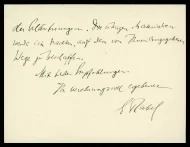 der Erläuterungen. Die übrigen Materialien
werde ich trachten, auf dem von Ihnen angegebenen
Wege zu beschaffen.
Mit besten Empfehlungen
Ihr hochachtungsvoll ergebener